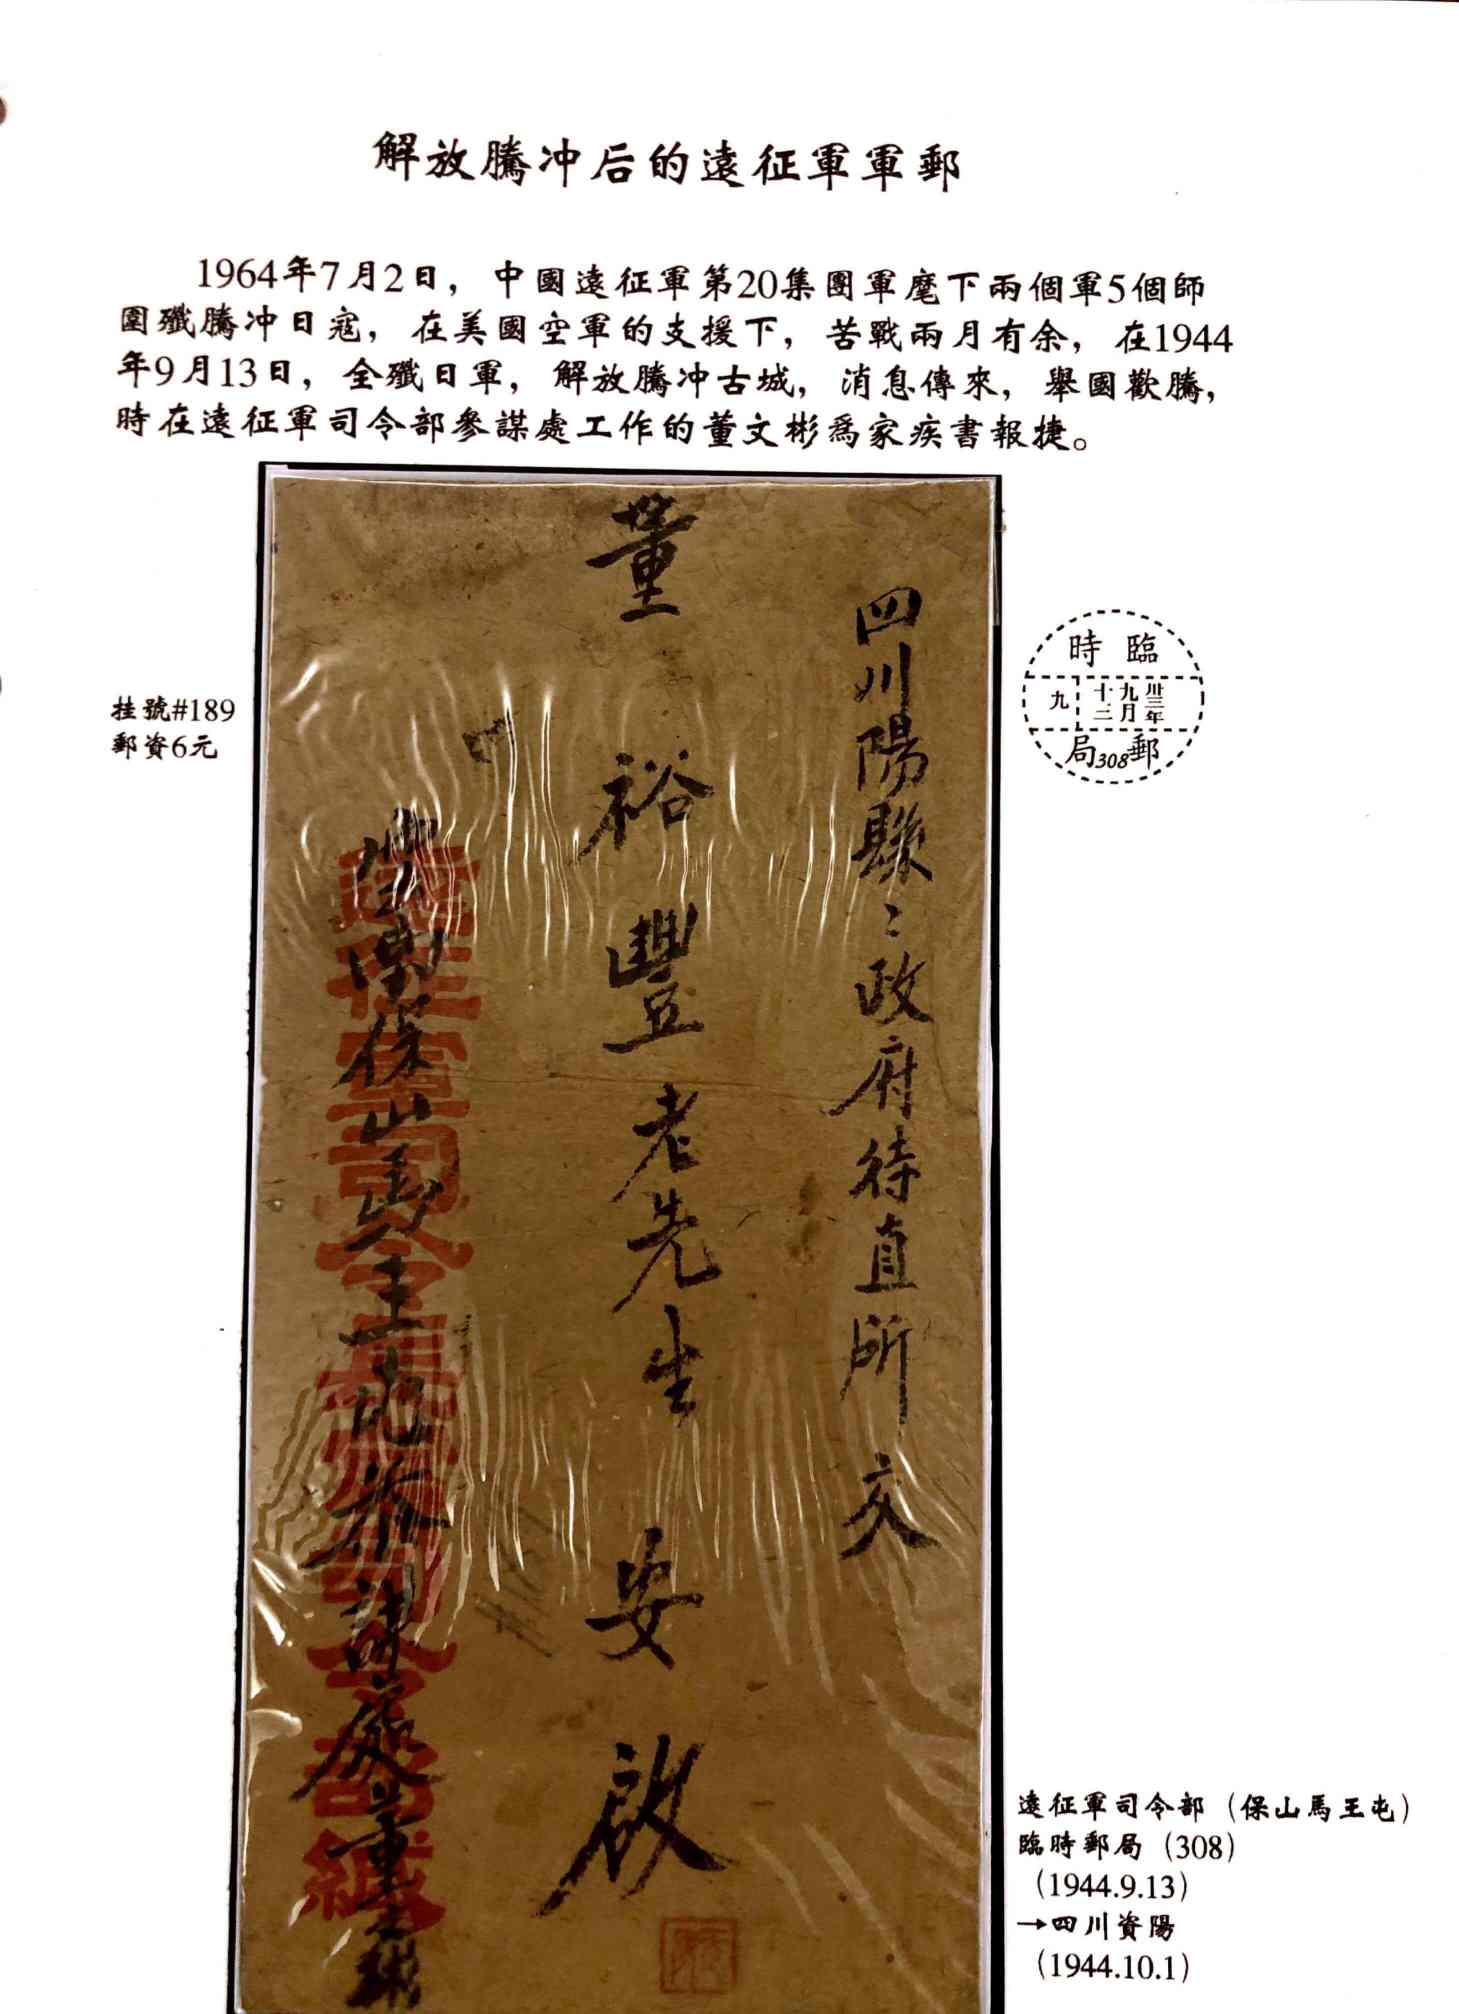 解放騰冲后的遠征軍軍郵
1964年7月2日，中國遠征軍第20集團軍麾下兩個軍5個師
圍殲騰冲日寇，在美國空軍的支援下，苦戰兩月有余，在1944
年9月13日，全殲日軍，解放騰冲古城，消息傳來，舉國歡騰，
時在遠征軍司令部參謀處工作的董文彬爲家疾書報捷。
挂號#189
郵資6元
四川陽縣：政府待直所交
董裕豐老先生安啟
雲南保山馬王屯參謀處董文彬
臨時
九 十三 九月 卅三年
局308郵
遠征軍司令部（保山馬王屯）
臨時郵局（308）
（1944.9.13）
→四川資陽
（1944.10.1）